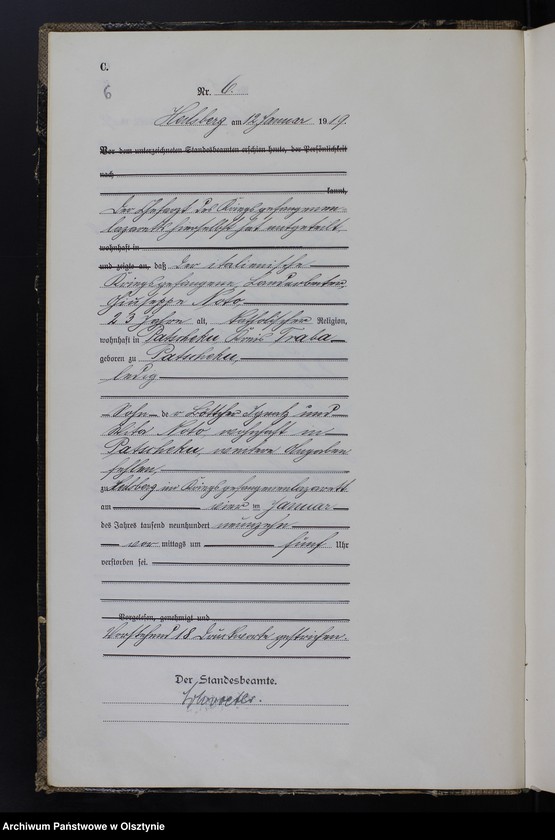 C.
6
Nr. 6.
Heilsberg am 12 Januar 1919.
Vor dem unterzeichneten Standesbeamten erschien heute, der Persönlichkeit
nach
kannt,
Der Chefarzt des Kriegsgefangenen-
lazaretts hierselbst hat mitgeteilt
wohnhaft in
und zeigte an, daß der italienische
Kriegsgefangene, Landarbeiter
Giuseppe Noto
23 Jahre alt, katholischer Religion,
wohnhaft in Patscheku, Kreis Traba
geboren zu Patscheku,
ledig
Sohn der Böttcher Ignatz und
Noto, wohnhaft in
Patscheku, weitere Angaben
fehlen,
zu Heilsberg im Kriegsgefangenenlazarett
am vier ten Januar
des Jahres tausend neunhundert neunzehn
vor mittags um fünf Uhr
verstorben sei.
Vorgelesen, genehmigt und
Vorstehend 18 Druckworte gestrichen.
Der Standesbeamte.
Archiwum Państwowe w Olsztynie